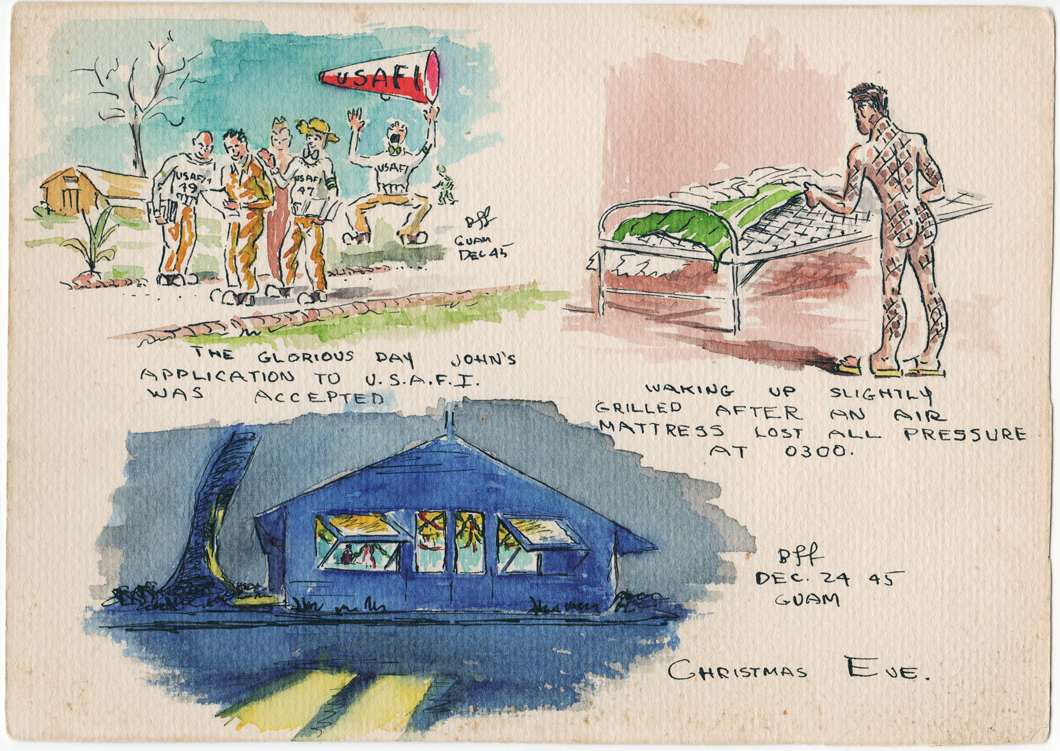 USAFI
USAFI
49
USAFI
47
USAFI
Bff
GUAM
DEC 45
THE GLORIOUS DAY JOHN'S
APPLICATION TO U.S.A.F.I.
WAS ACCEPTED
WAKING UP SLIGHTLY
GRILLED AFTER AN AIR
MATTRESS LOST ALL PRESSURE
AT 0300.
Bff
DEC. 24 45
GUAM
CHRISTMAS EVE.